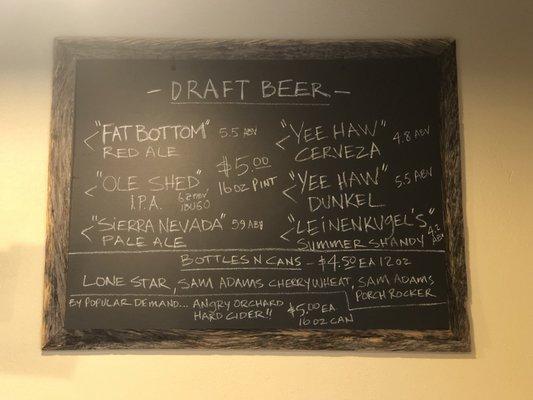 - DRAFT BEER -
"FAT BOTTOM" 5.5 ABV
RED ALE
"OLE SHED"
I.P.A.
"SIERRA NEVADA" 5.9 ABV
PALE ALE
$5.00
16oz PINT
"YEE HAW" 4.8 ABV
CERVEZA
"YEE HAW" 5.5 ABV
DUNKEL
"LEINENKUGEL'S" 4.2 ABV
SUMMER SHANDY
BOTTLES N CANS - $4.50 EA 12oz
LONE STAR, SAM ADAMS CHERRYWHEAT, SAM ADAMS
PORCH ROCKER
BY POPULAR DEMAND... ANGRY ORCHARD
HARD CIDER!!
$5.00 EA
16oz CAN